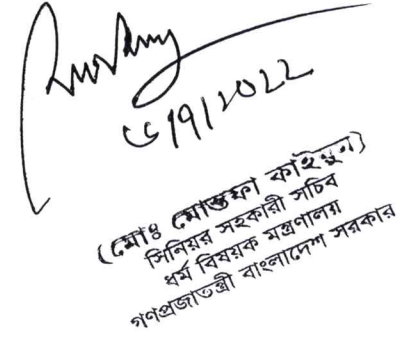 (মোঃ মোস্তফা কাইয়ুম)
সিনিয়র সহকারী সচিব
ধর্ম বিষয়ক মন্ত্রণালয়
গণপ্রজাতন্ত্রী বাংলাদেশ সরকার